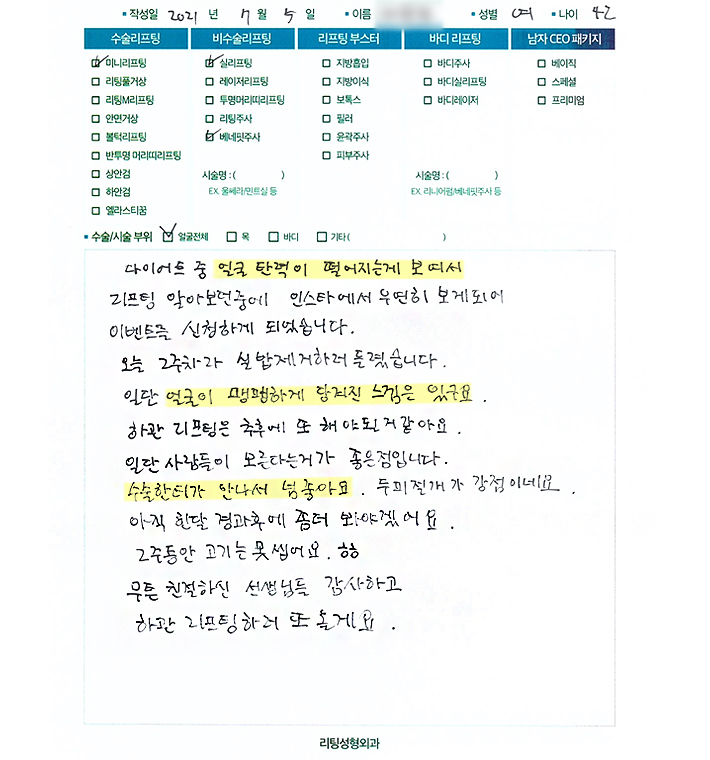 작성일 2021 년 7 월 5 일 이름 성별 여 나이 42
수술리프팅 비수술리프팅 리프팅 부스터 바디 리프팅 남자 CEO 패키지
미니리프팅 실리프팅 지방흡입 바디주사 베이직
리팅풀거상 레이저리프팅 지방이식 바디실리프팅 스페셜
리팅M리프팅 투명머리띠리프팅 보톡스 바디레이저 프리미엄
안면거상 리팅주사 필러
볼턱리프팅 베네핏주사 윤곽주사
반투명 머리띠리프팅 피부주사
상안검 시술명 : ( ) 시술명 : ( )
하안검 EX. 울쎄라/민트실 등 EX. 리니어펌/베네핏주사 등
엘라스티꿈
수술/시술 부위 얼굴전체 목 바디 기타 ( )
다이어트 중 얼굴 탄력이 떨어지는게 보여서
리프팅 알아보던중에 인스타에서 우연히 보게되어
이벤트를 신청하게 되었습니다.
오늘 2주차라 실밥제거하러 들렸습니다.
일단 얼굴이 땡땡하게 당겨진 느낌은 있구요.
하관 리프팅은 추후에 또 해야될거같아요.
일단 사람들이 모른다는거가 좋은점입니다.
수술한티가 안나서 넘좋아요. 두피절개가 강점이네요.
아직 한달 경과후에 좀더 봐야겠어요.
2주동안 고기는 못씹어요. ㅎㅎ
무튼 친절하신 선생님들 감사하고
하관 리프팅하러 또 올게요.
리팅성형외과